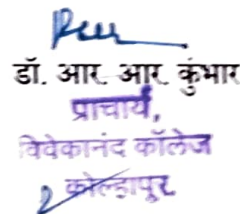 डॉ. आर. आर. कुंभार
प्राचार्य,
विवेकानंद कॉलेज
कोल्हापूर